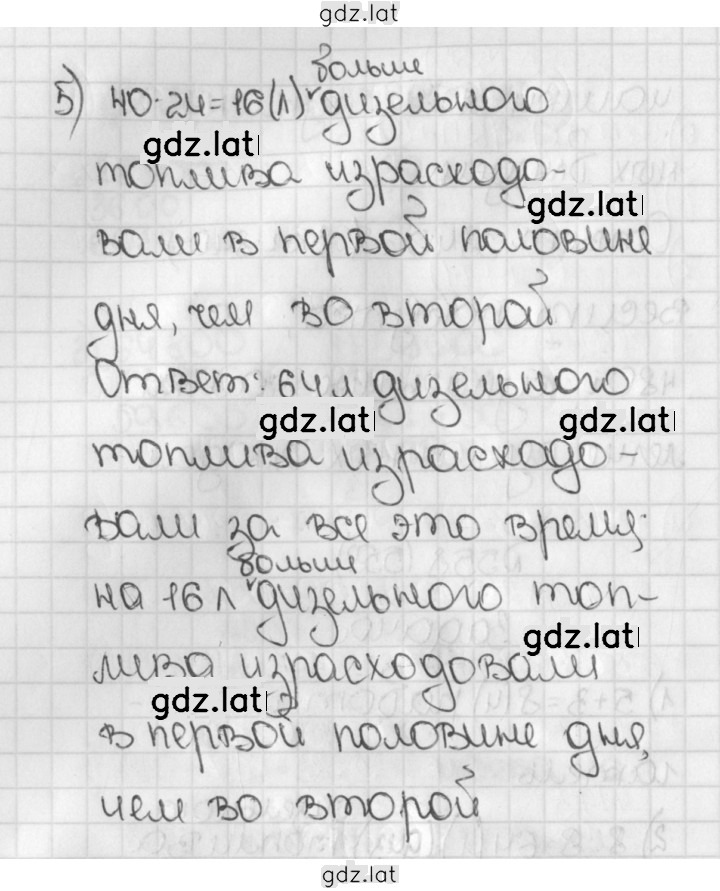 gdz.lat
больше
5) 40·24=16(л) ᵛдизельного
gdz.lat
топлива израсходо-
gdz.lat
вали в первой половине
дня, чем во второй
Ответ: 64 л дизельного
gdz.lat gdz.lat
топлива израсходо-
вали за все это время;
больше
на 16 л ᵛдизельного топ-
gdz.lat
лива израсходовали
gdz.lat
в первой половине дня,
чем во второй
gdz.lat